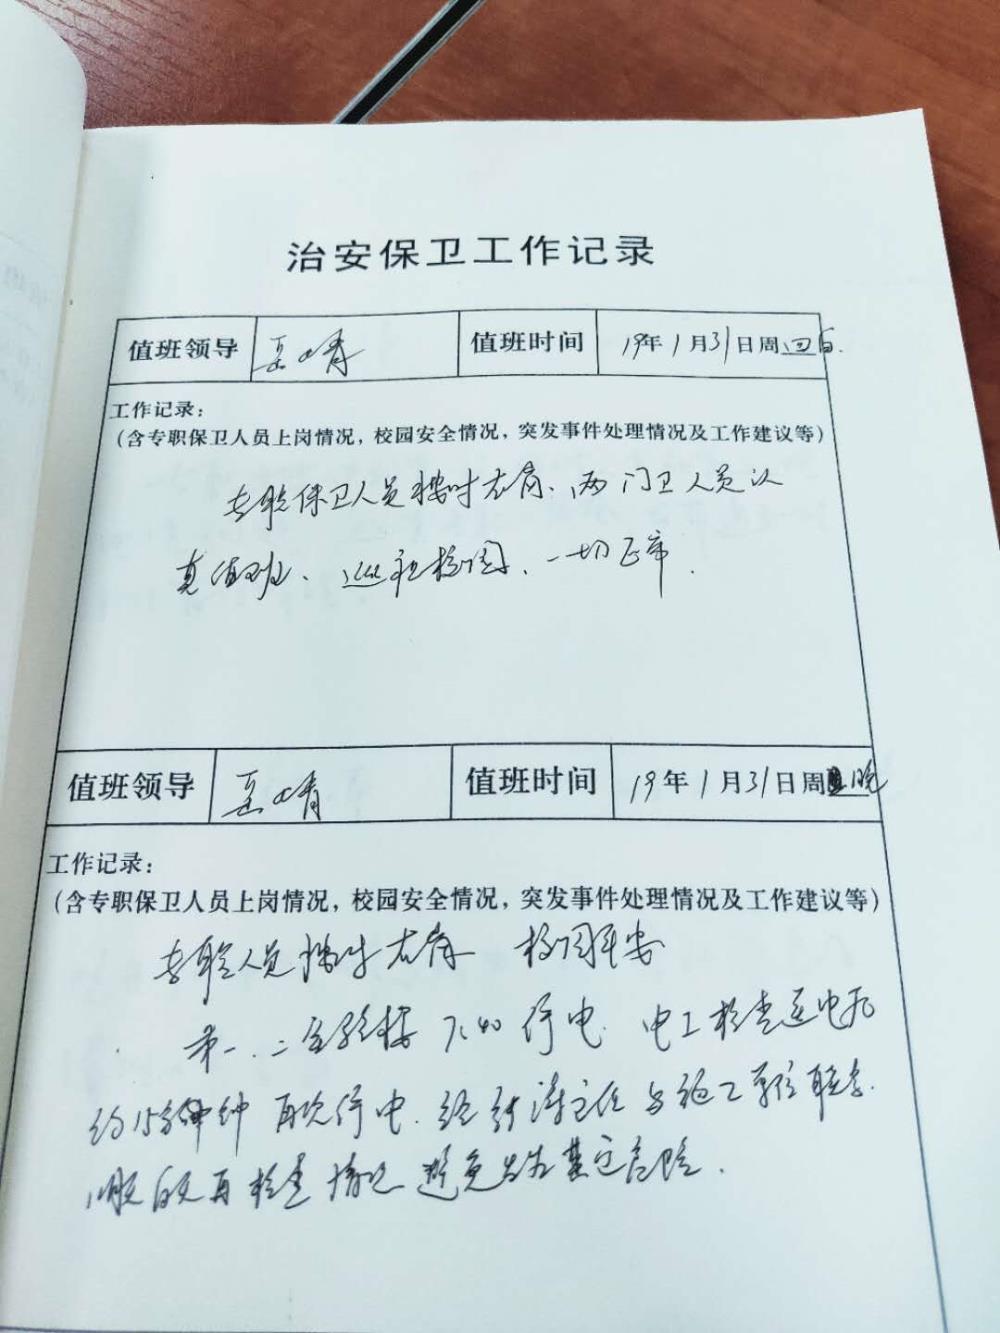 治安保卫工作记录
值班领导
值班时间 19年1月31日周四白.
工作记录：
（含专职保卫人员上岗情况，校园安全情况，突发事件处理情况及工作建议等）
专职保卫人员按时在岗、两门卫人员认
真值班、巡视校园、一切正常.
值班领导
值班时间 19年1月31日周四晚
工作记录：
（含专职保卫人员上岗情况，校园安全情况，突发事件处理情况及工作建议等）
专职人员按时在岗 校园平安
第一.二实验楼 7:40 停电. 电工检查送电后
约15分钟 再次停电. 经 主任与施工单位联系.
明天白天再检查情况 避免发生其它危险.